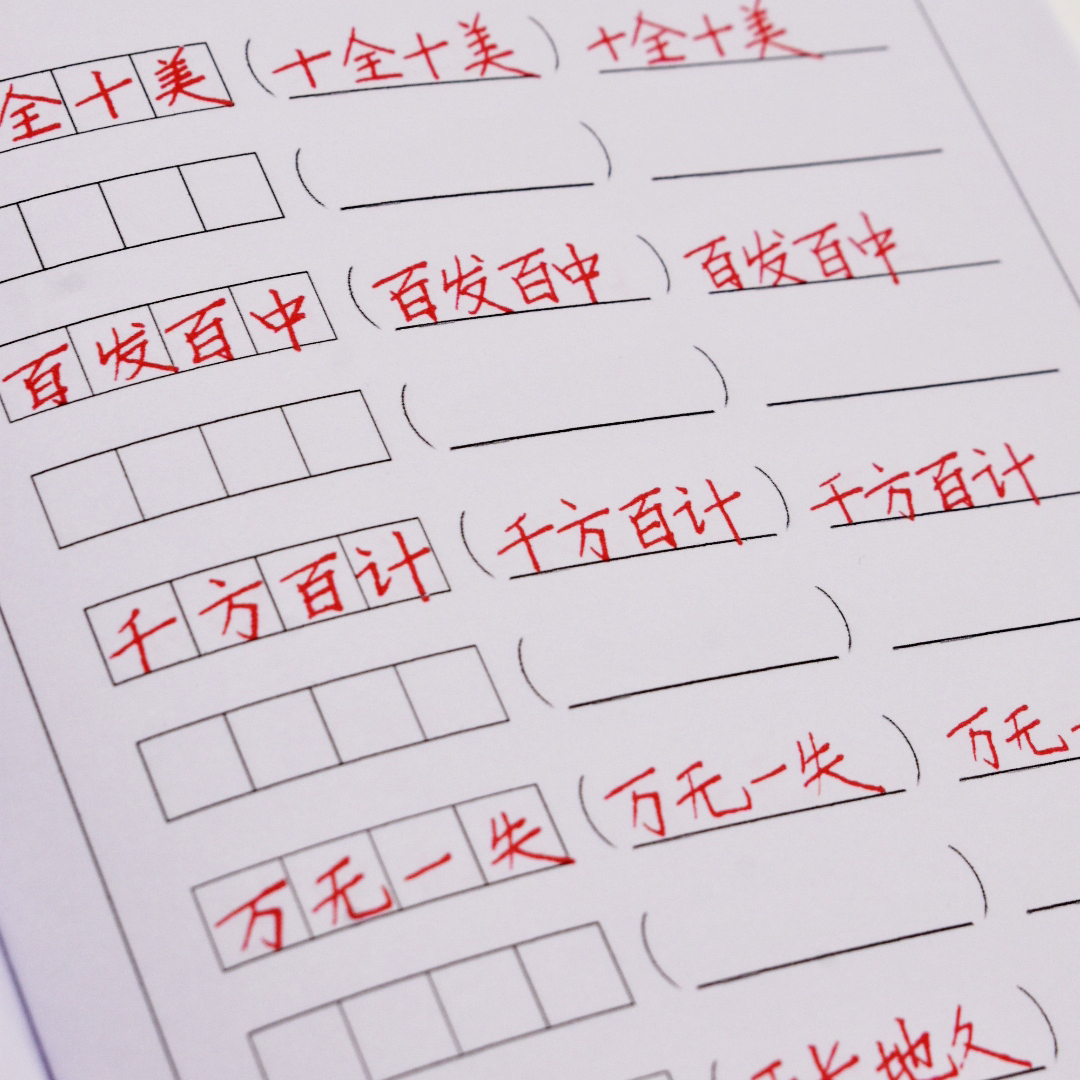 全十美 (十全十美) 十全十美
百发百中 (百发百中) 百发百中
千方百计 (千方百计) 千方百计
万无一失 (万无一失) 万无一
长地久